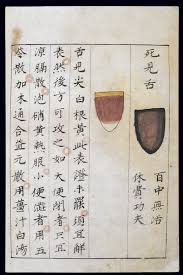 死見舌
百中無治
休費功夫
舌見尖白根黃此表證未罷須宜解
表然後方可攻如大便閉者只宜
涼膈散泡硝黃熱服小便澀者用五
苓散加木通合益元散用薑汁白湯